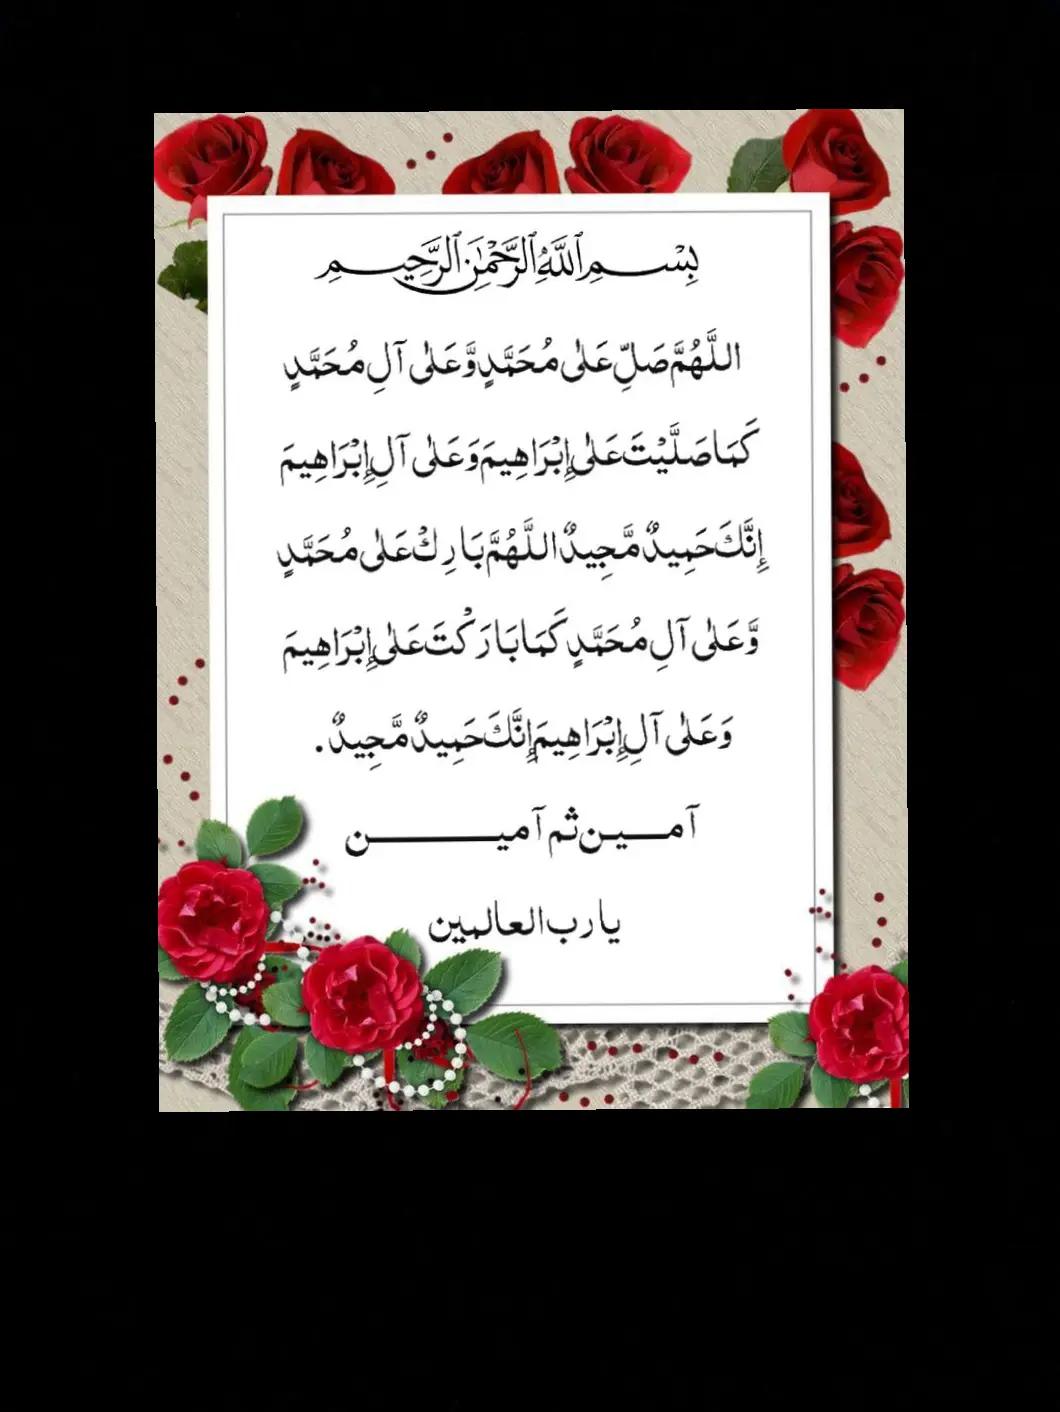 بِسْمِ ٱللَّهِ ٱلرَّحْمَٰنِ ٱلرَّحِيمِ
اللَّهُمَّ صَلِّ عَلٰى مُحَمَّدٍ وَّعَلٰى آلِ مُحَمَّدٍ
كَمَا صَلَّيْتَ عَلٰى إِبْرَاهِيمَ وَعَلٰى آلِ إِبْرَاهِيمَ
إِنَّكَ حَمِيدٌ مَّجِيدٌ اللَّهُمَّ بَارِكْ عَلٰى مُحَمَّدٍ
وَّعَلٰى آلِ مُحَمَّدٍ كَمَا بَارَكْتَ عَلٰى إِبْرَاهِيمَ
وَعَلٰى آلِ إِبْرَاهِيمَ إِنَّكَ حَمِيدٌ مَّجِيدٌ .
آمـــيـن ثم آميـــــــــن
يارب العالمين